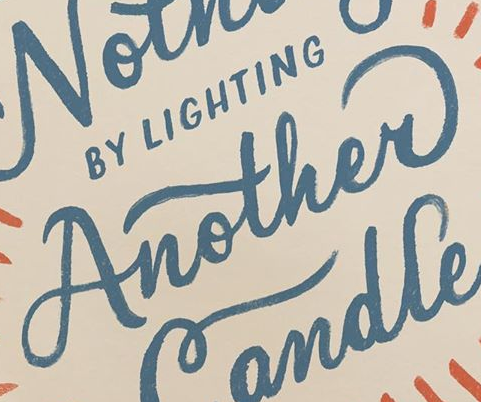 Nothing
BY LIGHTING
Another
Candle